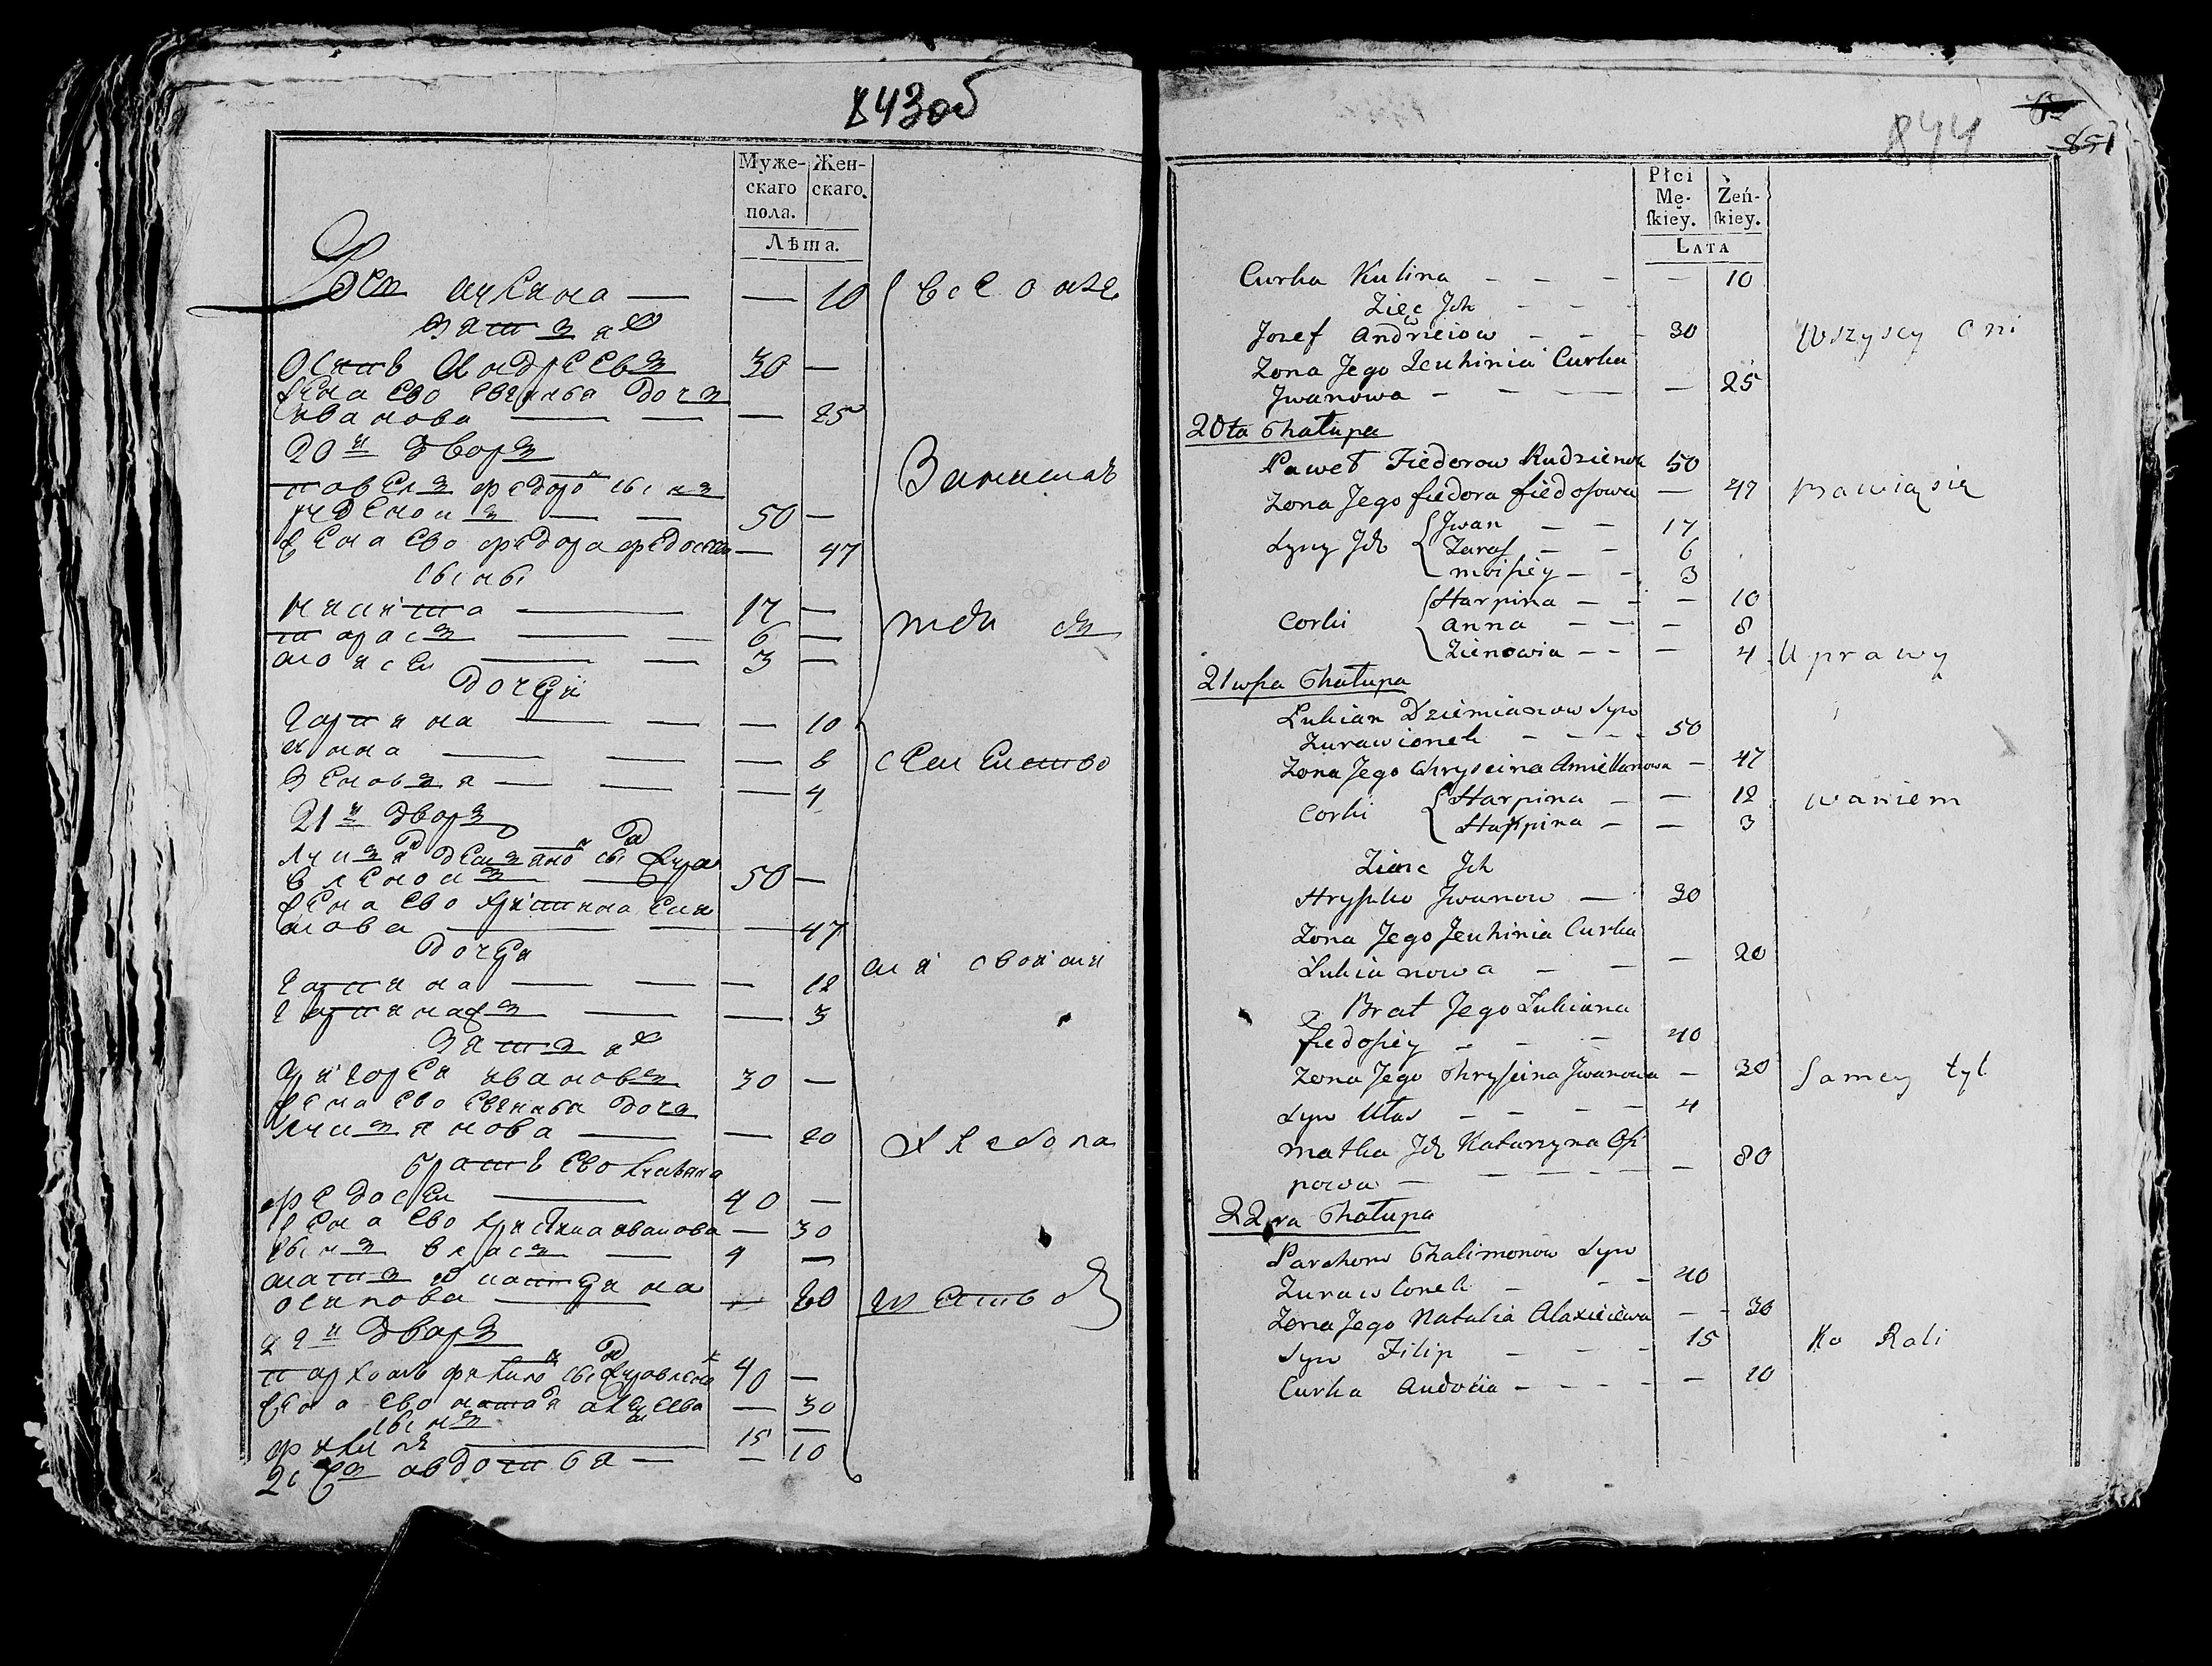 843об
Муже-
скаго
пола.
Жен-
скаго.
Лѣта.
Дочь акулина — — 10
Зять их
Осипъ Андреевъ 30 —
Жена ево евгинья дочь
иванова — — — 25
20й дворъ
павелъ федоро сынъ
руденокъ — — 50 —
Жена ево федора федосова — 47
сыны
никита — 17 —
тарасъ — — 6 —
моисеи — — 3 —
дочери
гарпина — — — 10
анна — — — 8
Зеновья — — — 4
21й дворъ
лукьян демьяно сы жура
вленокъ — 50 —
Жена ево христина емия
нова — — — 47
дочери
гарпина — — — 12
гарпинажъ — — — 3
Зять их
григореи ивановъ 30 —
Жена ево евгинья дочь
лукьянова — — 20
братъ ево лукьяна
федосеи — 40 —
Жена ево христина иванова — 30
сынъ власъ — 4 —
мать их катерина
осипова — — 80
22й дворъ
пархомъ филимо сы журавленок 40 —
Жена ево наталя алексеева — 30
сынъ
филипъ — 15 —
дочь авдотья — — 10
все оне
Занимаю
тся
семейство
ми своими
хлебопа
шествомъ
844
851
Płci
Mę-
ſkiey.
Żeń-
ſkiey.
LATA
Curka Kulina — — — — 10
Zięc Jch — — —
Jozef Andrieiow — — — 30
Zona Jego Jeuhinia Curka
Jwanowa — — — — — 25
20ta Chałupa
Paweł Fiedorow Rudzienok 50
Zona Jego fiedora fiedosowa — 47
Syny Jch { Jwan — — 17
Taras — — 6
moisiey — — 3
Corki { Harpina — — — 10
anna — — — 8
Zienowia — — — 4
21wsza Chałupa
Lukian Dziemianow Syn
Zurawionek — — — — 50
Zona Jego Chryscina Amiellanowa — 47
Corki { Harpina — — 12
Harpina — — 3
Zienc Jch
Hryszko Jwanow — 30
Zona Jego Jeuhinia Curka
Lukianowa — — — 20
Brat Jego Lukiana
fiedosiey — — — 40
Zona Jego Chryscina Jwanowa — 30
Syn Ułas — — — — 4
matka Jch Katarzyna Osi
powa — — — — — — 80
22ra Chałupa
Parchom Chalimonow Syn
Zurawlonek — — — 40
Zona Jego Natalia Alaxieiewa — — 30
Syn Filip — — — 15
Curka Audocia — — — — — 10
Wszyscy Oni
prawią się
Uprawy
waniem
Samey tyl
Ko Roli